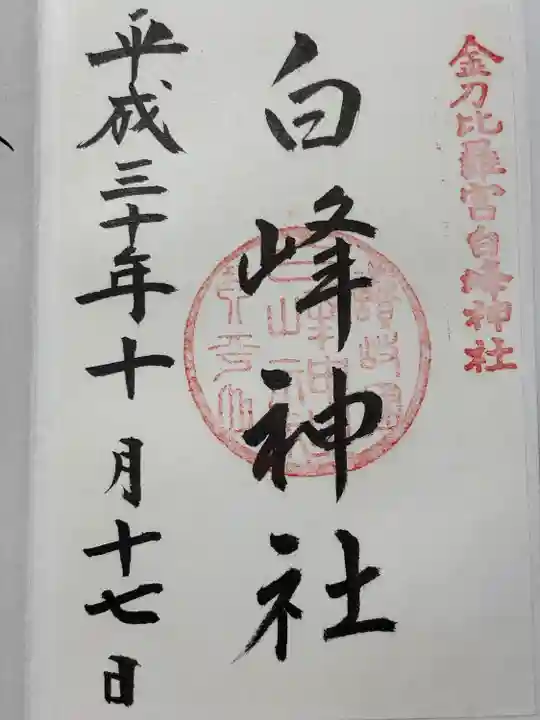 金刀比羅宮白峰神社
白峰神社
平成三十年十月十七日